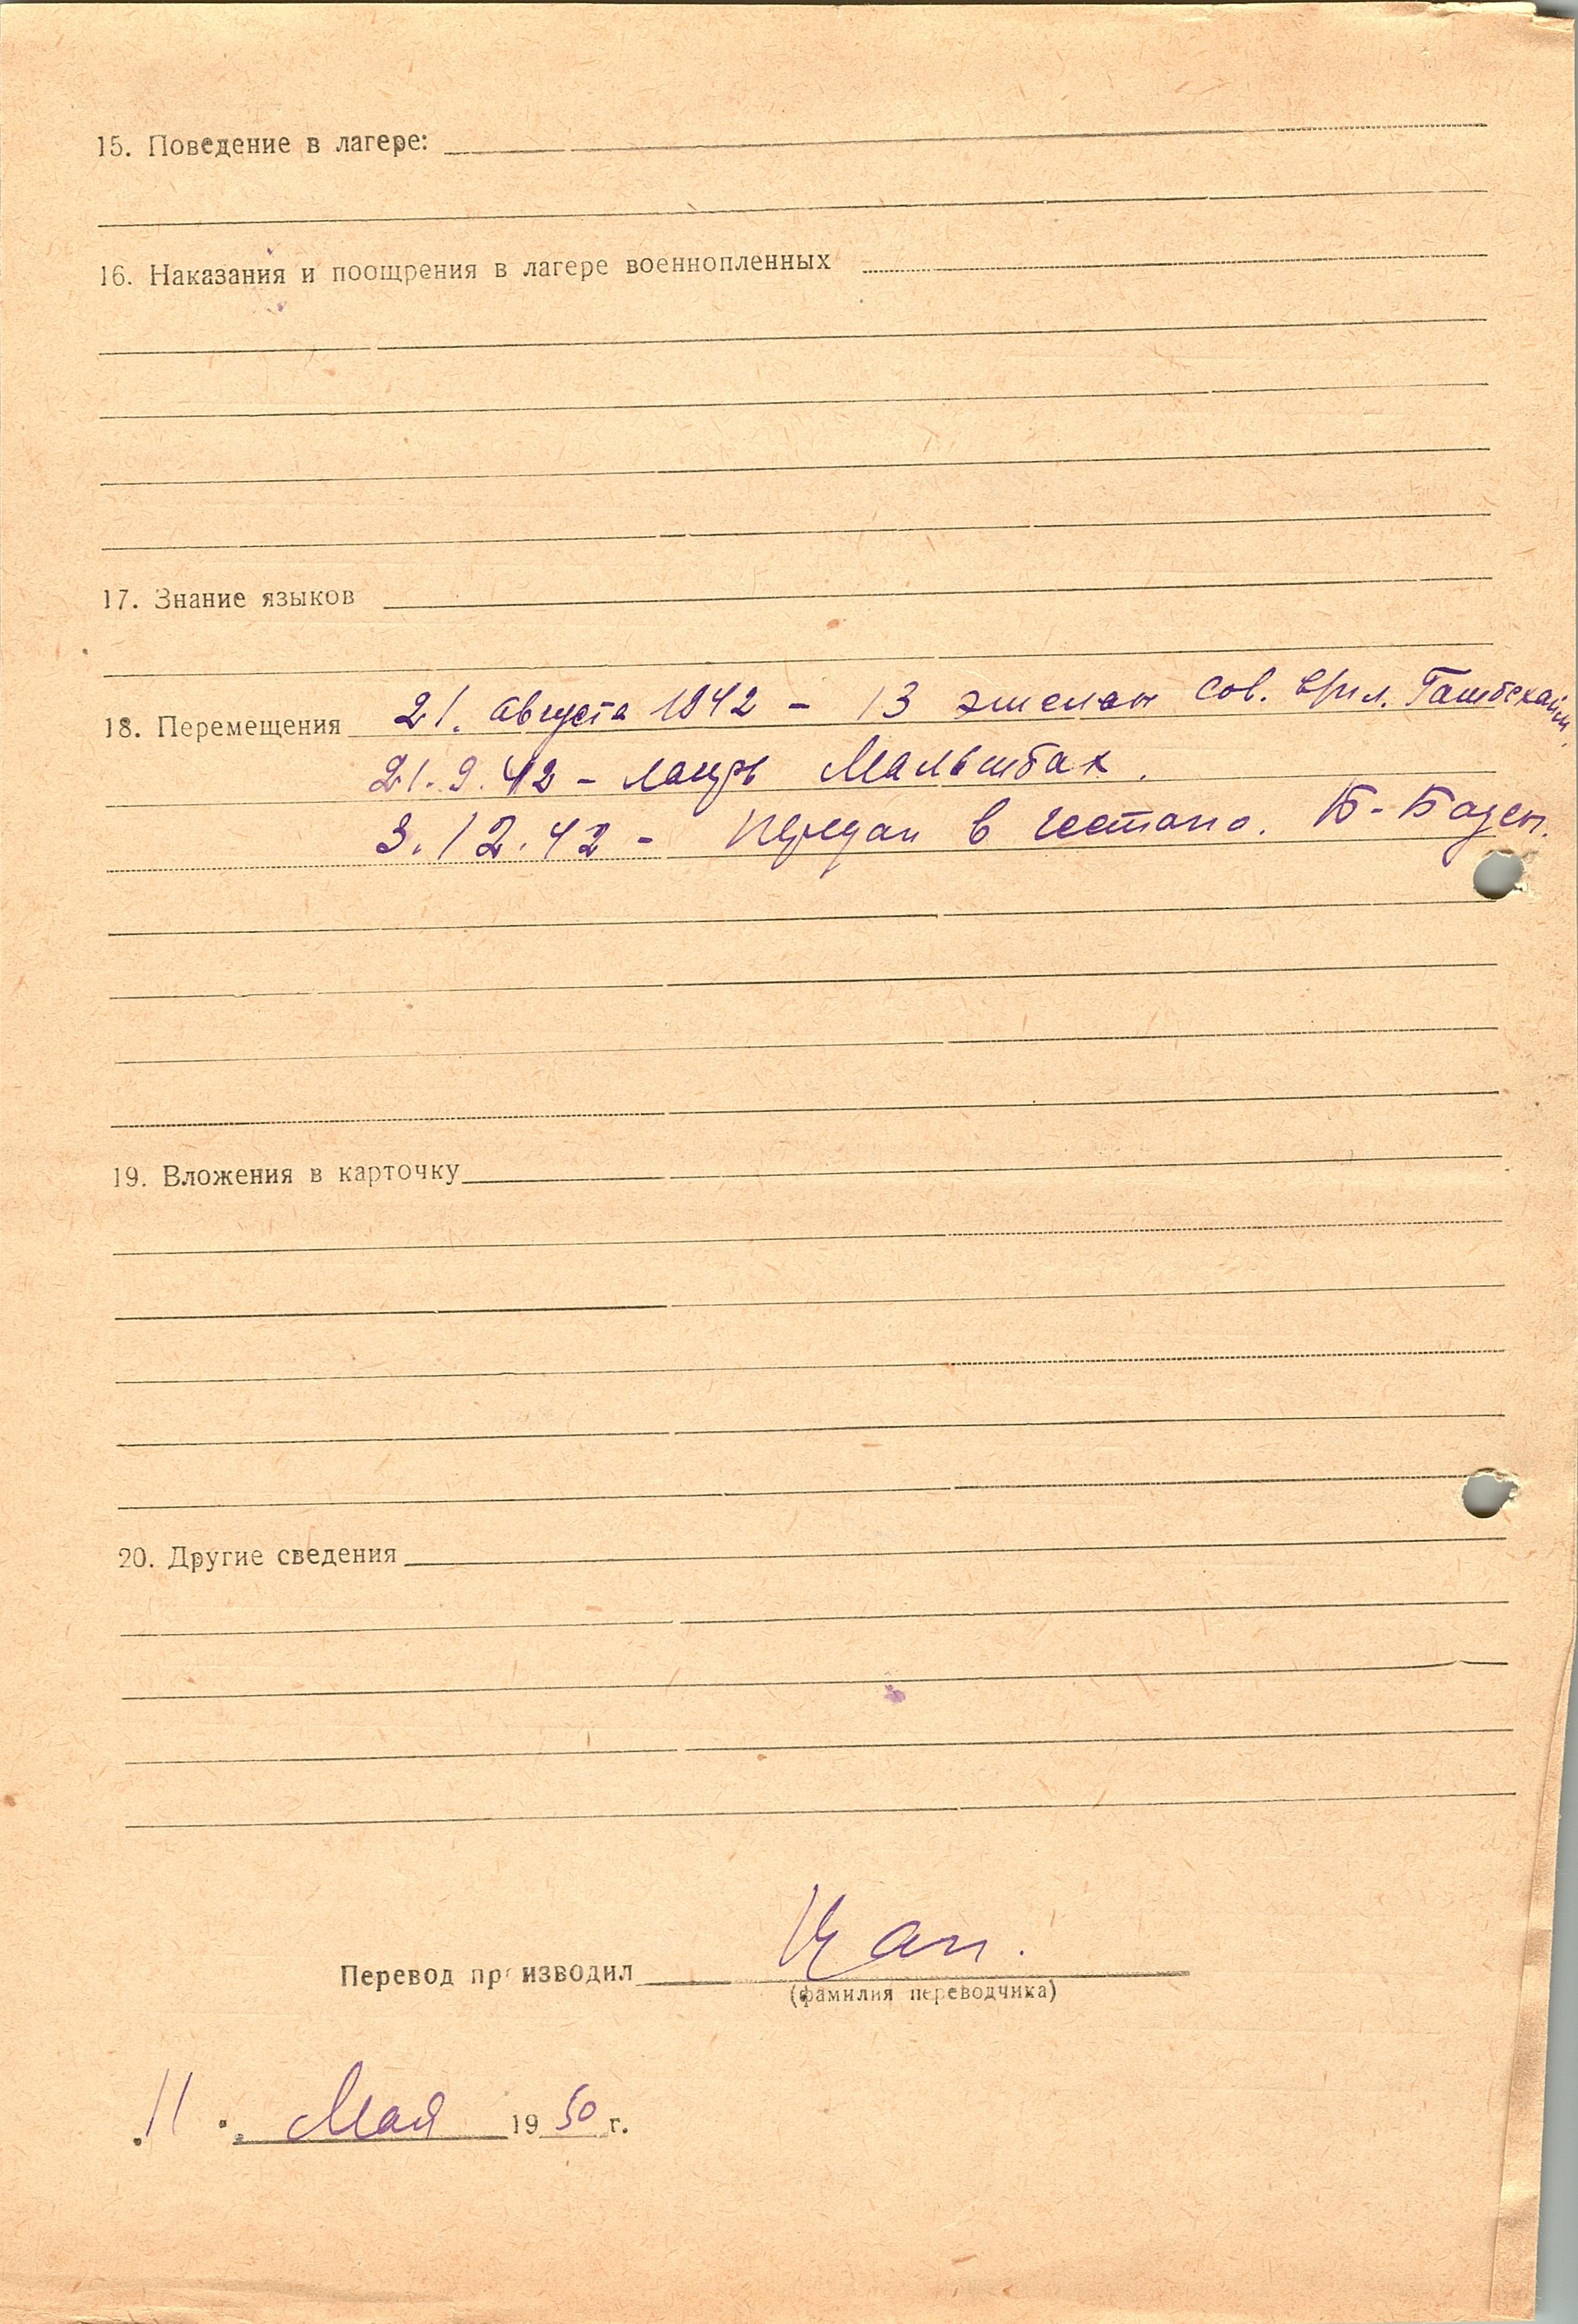 15. Поведение в лагере:
16. Наказания и поощрения в лагере военнопленных
17. Знание языков
18. Перемещения 21. августа 1942 - 13 эшелон сов. Гамбсхайм.
21.9.42 - лагерь Мальшбах.
3.12.42 - передан в гестапо. Б-Баден.
19. Вложения в карточку
20. Другие сведения
Перевод производил
(фамилия переводчика)
"11" Мая 1950 г.